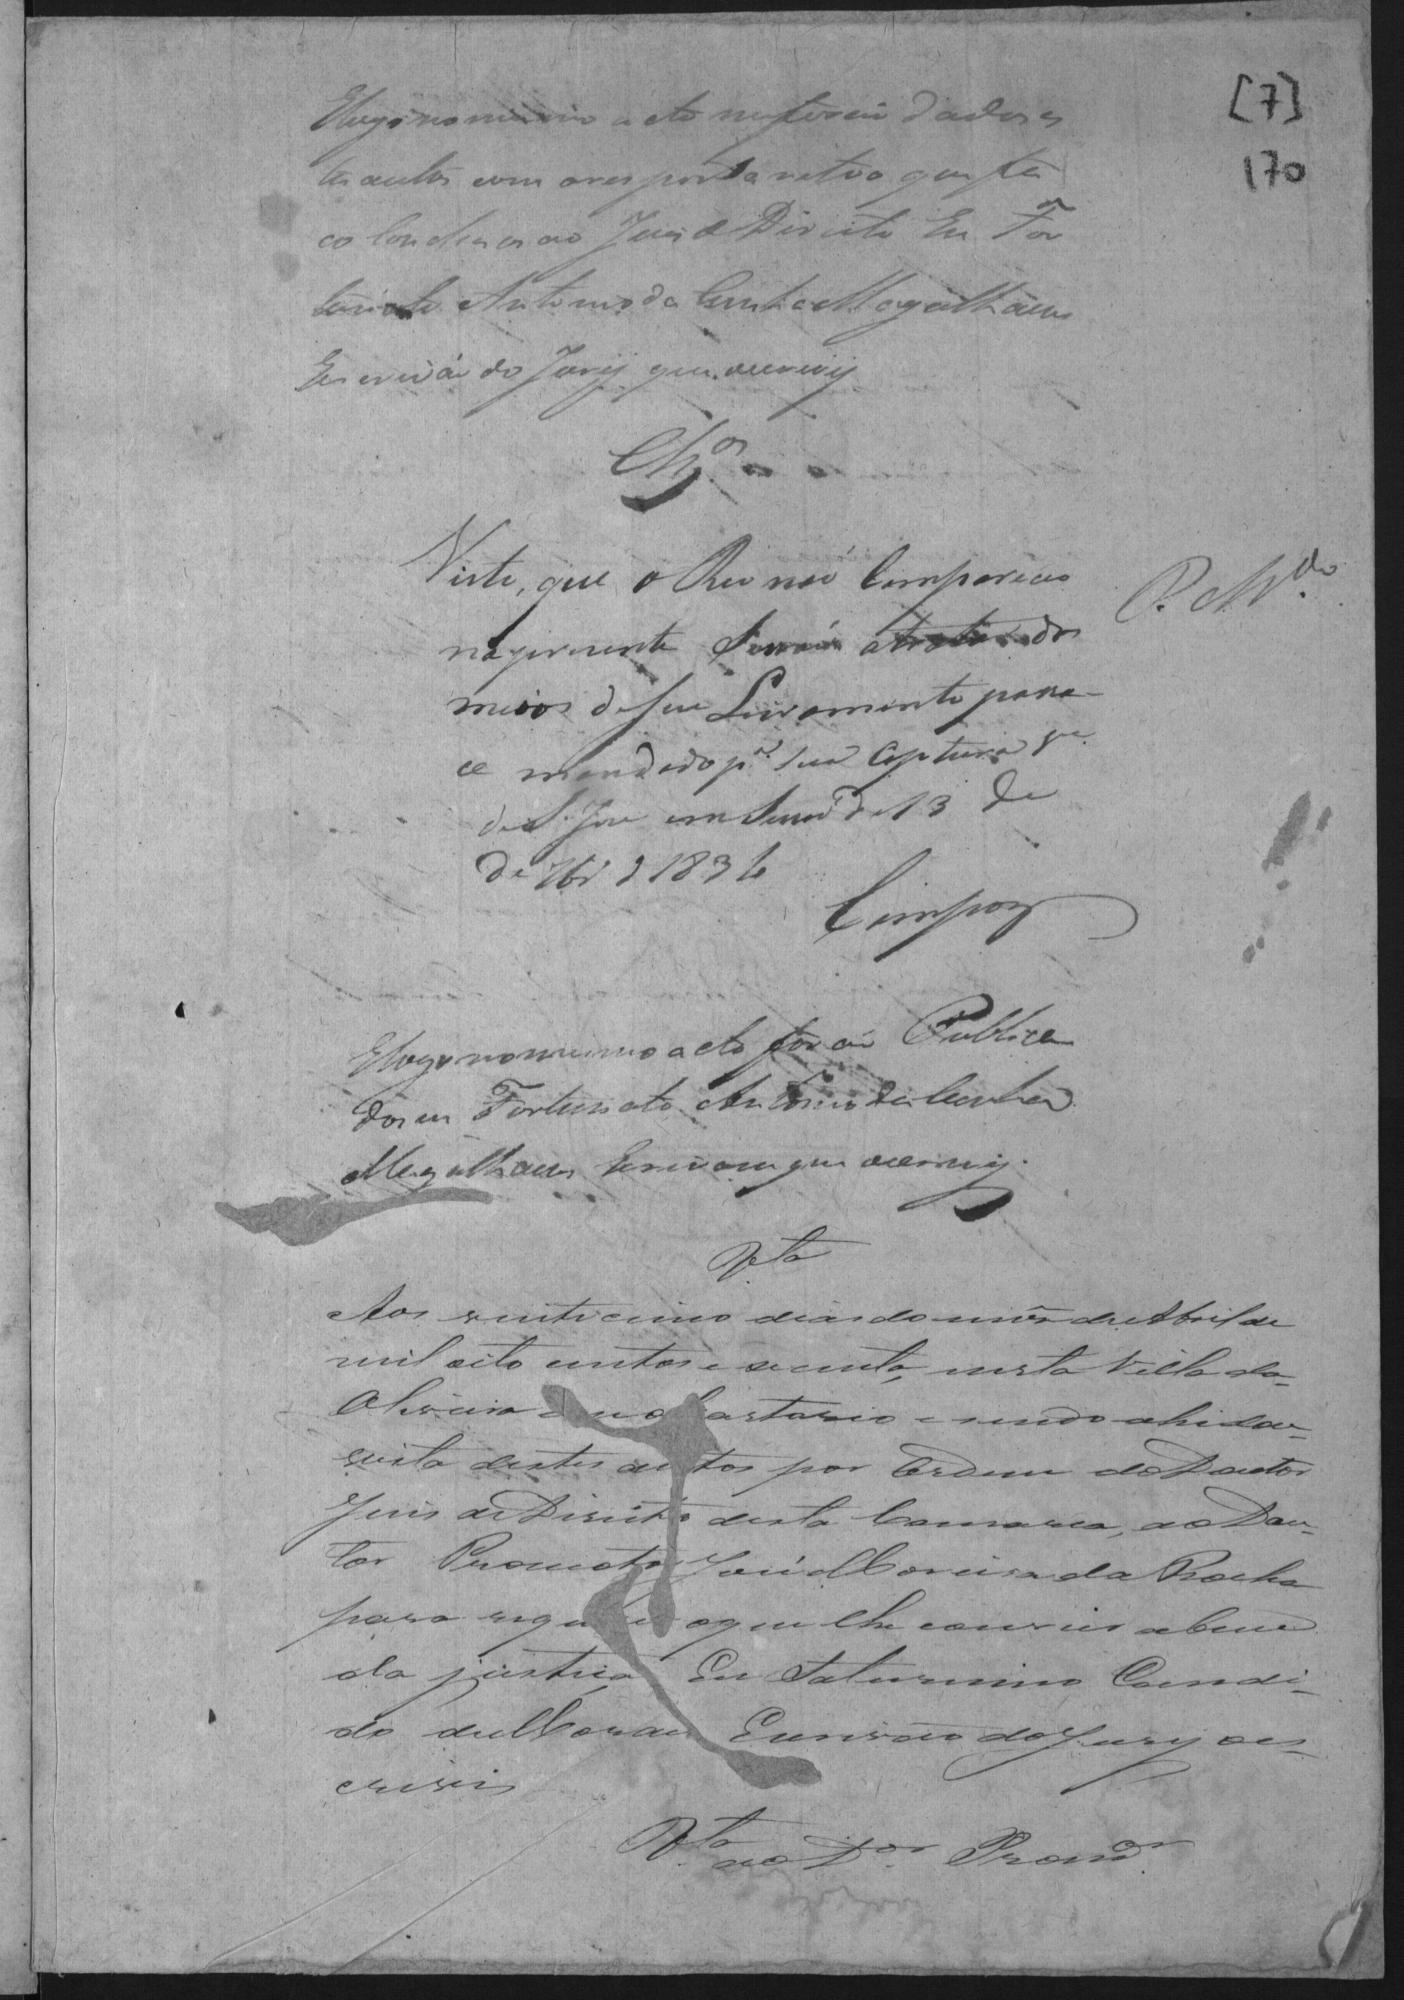 [7]
170
E logo no mesmo acto me forão dados es
tes autos com a resposta retro que fiz
co concluzos ao Juis de Direito Eu For
tunato Antonio da Cunha Magalhaens
Escrivão do Jury que escrevy
Clzos
Visto, que o Reo não Compareceo
na prezente Sessão a tratar dos
meios de seu Livramento passa-
ce mandado pa sua Captura Va
de S. Joze em Sessão de 13 de
de 7bro d 1836
Campos
P. Mdo
E logo no mesmo acto forão Publica
dos eu Fortunato Antonio da Cunha
Magalhaens Escrivam que escrevy.
Vta
Aos vinte cinco dias do mês de Abril de
mil oito centos e secenta, nesta Villa da
Oliveira em o Cartorio e sendo ahi dou
vista destes autos por Ordem do Doutor
Juis de Direito desta Comarca, ao Dou-
tor Promotor José Moreira da Rocha
para requerer o que lhe convier a bem
da justiça Eu Saturnino Candi-
do de Moraes Escrivão do Jury o es-
crevi
Vta ao Dor Promor